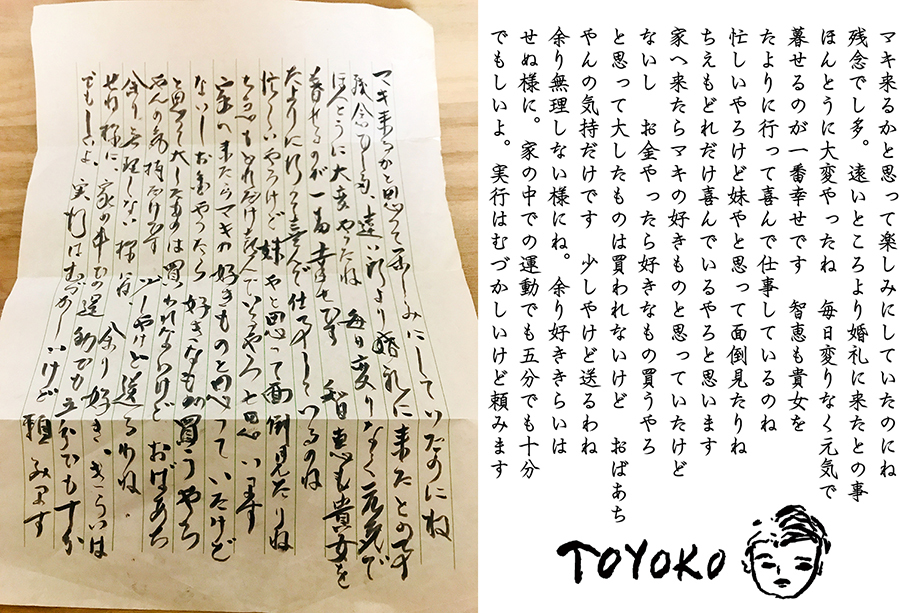 マキ来るかと思って楽しみにしていたのにね
残念でし多。遠い所より婚礼に来たとの事
ほんとうに大変やったね 毎日変りなく元気で
暮せるのが一番幸せです 智恵も貴女を
たよりに行って喜んで仕事しているのね
忙しいやろけど妹やと思って面倒見たりね
ちえもどれだけ喜んでいるやろと思います
家へ来たらマキの好きものと思っていたけど
ないし お金やったら好きなもの買うやろ
と思って大したものは買われないけど おばあち
やんの気持だけです 少しやけど送るわね
余り無理しない様にね。 余り好ききらいは
せぬ様に 家の中での運動でも五分でも十分
でもしいよ。実行はむづかしいけど頼みます
マキ来るかと思って楽しみにしていたのにね
残念でし多。遠いところより婚礼に来たとの事
ほんとうに大変やったね 毎日変りなく元気で
暮せるのが一番幸せです 智恵も貴女を
たよりに行って喜んで仕事しているのね
忙しいやろけど妹やと思って面倒見たりね
ちえもどれだけ喜んでいるやろと思います
家へ来たらマキの好きものと思っていたけど
ないし お金やったら好きなもの買うやろ
と思って大したものは買われないけど おばあち
やんの気持だけです 少しやけど送るわね
余り無理しない様にね。余り好ききらいは
せぬ様に。家の中での運動でも五分でも十分
でもしいよ。実行はむづかしいけど頼みます
TOYOKO